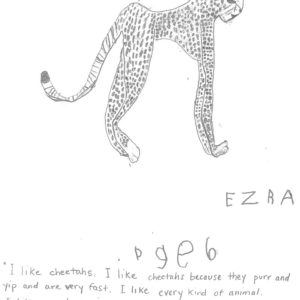 EZRA
age 6
"I like cheetahs. I like cheetahs because they purr and
yip and are very fast. I like every kind of animal.